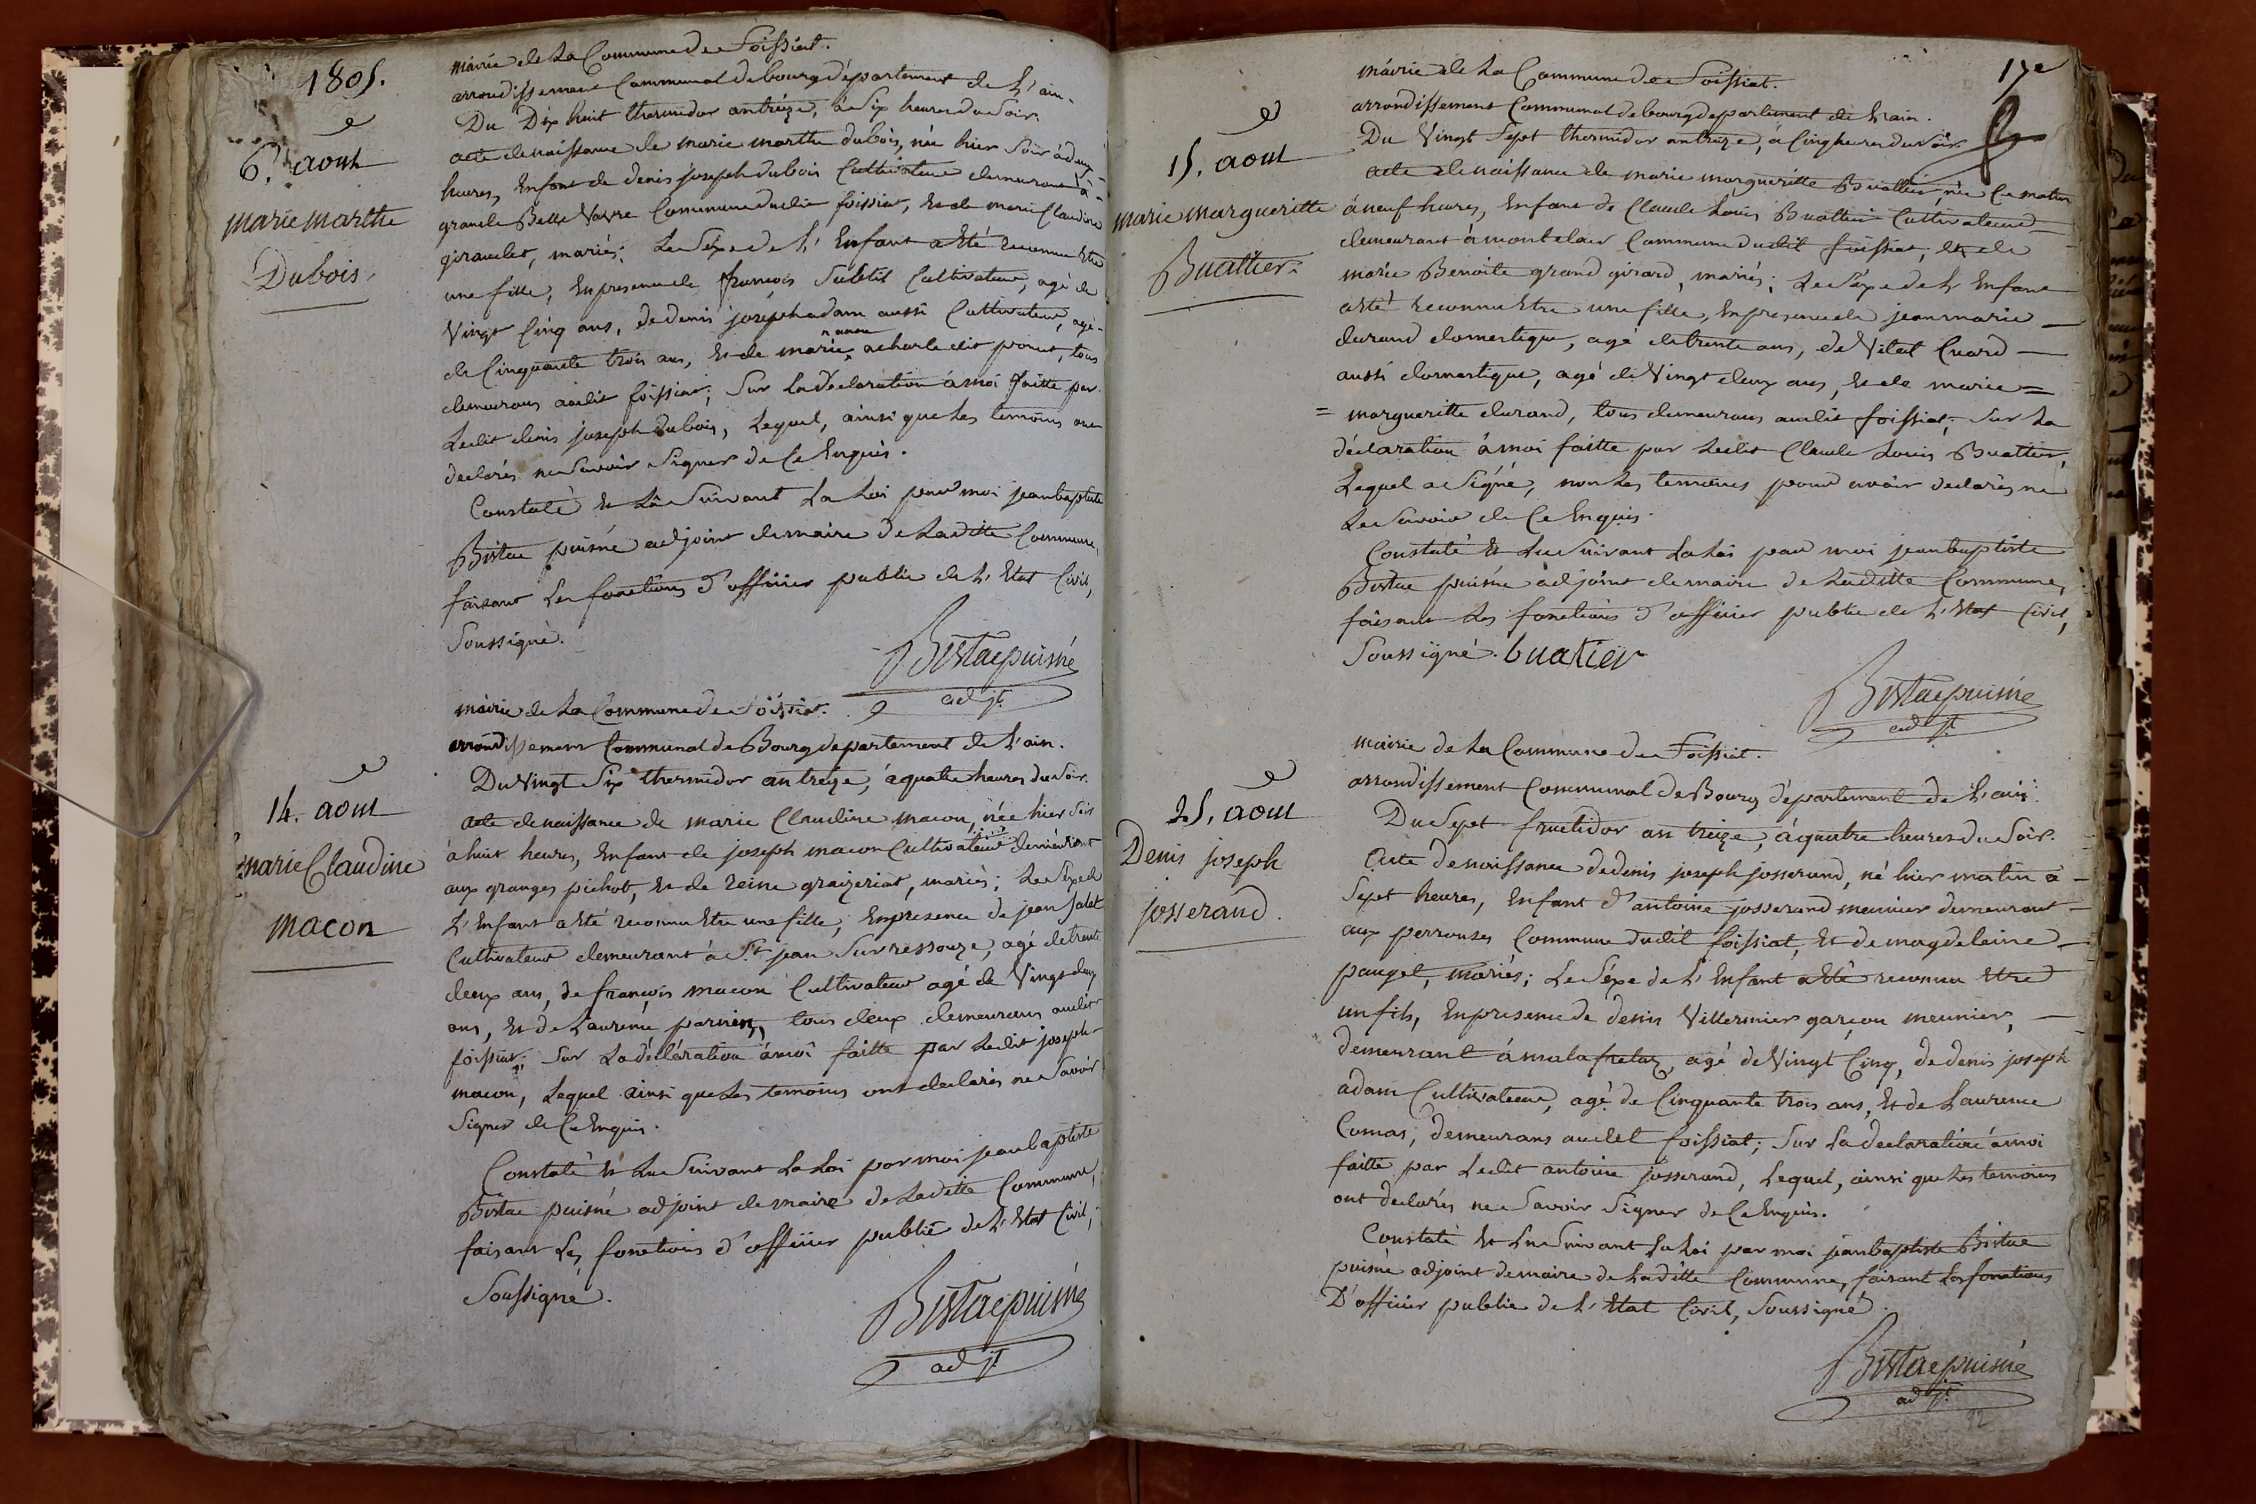 1805.
6. aout
marie marthe
Dubois.
mairie de La Commune de Foissiat.
arrondissement Communal de bourg département de L'ain.
Du Dix huit thermidor an treize, à Six heures du Soir.
acte de naissance de marie marthe dubois, née hier Soir à deux
heures, Enfant de denis joseph dubois Cultivateur demeurant à
grande Belle Vavre Commune dudit foissiat, Et de marie Claudine
giraudet, mariés; Le Séxe de L'Enfant a été reconnu Etre
une fille, En presence de françois Subtil Cultivateur, agé de
Vingt Cinq ans, de denis joseph adam aussi Cultivateur, agé
de Cinquante trois ans, Et de marie acharle dit ponut, tous
demeurans audit foissiat; Sur La déclaration à moi faitte par
Ledit denis joseph dubois, Lequel, ainsi que Les temoins ont
declarés ne Savoir Signer de Ce Enquis.
Constaté Et Lû Suivant La Loi par moi jean baptiste
Bistac puisné adjoint de maire de Laditte Commune,
faisant Les fonctions d'officier public de L'Etat Civil,
Soussigné.
Bistac puisné
adjt.
14. aout
marie Claudine
macon
mairie de La Commune de Foissiat.
arrondissement Communal de Bourg département de L'ain.
Du Vingt Six thermidor an treize, à quatre heures du Soir.
acte de naissance de marie Claudine macon, née hier Soir
à huit heures, Enfant de joseph macon Cultivateur demeurant
aux granges pichot, Et de reine graizeriat, mariés; Le Séxe de
L'Enfant a été reconnu Etre une fille, En presence de jean Salet
Cultivateur demeurant à St. jean Sur ressouze, agé de trente
deux ans, de françois macon Cultivateur agé de Vingt deux
ans, Et de Laurence, tous deux demeurans audit
foissiat; Sur La déclaration à moi faitte par Ledit joseph
macon, Lequel ainsi que Les temoins ont declarés ne Savoir
Signer de Ce Enquis.
Constaté Et Lu Suivant La Loi par moi jean baptiste
Bistac puisné adjoint de maire de Laditte Commune,
faisant Les fonctions d'officier public de L'Etat Civil,
Soussigné.
Bistac puisné
adjt.
15. aout
marie margueritte
Buattier.
mairie de La Commune de Foissiat.
arrondissement Communal de bourg département de L'ain.
Du Vingt Sept thermidor an treize, à Cinq heures du Soir.
acte de naissance de marie margueritte Buattier, née Ce matin
à neuf heures, Enfant de Claude Louis Buattier Cultivateur
demeurant à montclair Commune dudit foissiat, Et de
marie Benoite grand girard, mariés; Le Séxe de L'Enfant
a été reconnu Etre une fille, En presence de jean marie
durand domestique, agé de trente ans, de Vital Cuard
aussi domestique, agé de Vingt deux ans, Et de marie =
= margueritte durand, tous demeurans audit foissiat; Sur La
déclaration à moi faitte par Ledit Claude Louis Buattier,
Lequel a Signé, non Les temoins pour avoir declarés ne
Le Savoir de Ce Enquis.
Constaté Et Lu Suivant La Loi par moi jean baptiste
Bistac puisné adjoint de maire de Laditte Commune,
faisant Les fonctions d'officier public de L'Etat Civil,
Soussigné. buatier
Bistac puisné
adjt.
25. aout
Denis joseph
josserand.
mairie de La Commune de Foissiat.
arrondissement Communal de Bourg département de L'ain.
Du Sept fructidor an treize, à quatre heures du Soir.
Acte de naissance de denis joseph josserand, né hier matin à
Sept heures, Enfant d'antoine josserand meunier demeurant
aux perrouses Commune dudit foissiat, Et de magdelaine
pauget, mariés; Le Séxe de L'Enfant a été reconnu Etre
un fils, En presence de denis Villermier garçon meunier,
demeurant à malafretaz, agé de Vingt Cinq, de denis joseph
adam Cultivateur, agé de Cinquante trois ans, Et de Laurence
Comas, demeurans audit foissiat; Sur La declaration à moi
faitte par Ledit antoine josserand, Lequel, ainsi que Les temoins
ont declarés ne Savoir Signer de Ce Enquis.
Constaté Et Lu Suivant La Loi par moi jean baptiste Bistac
puisné adjoint de maire de Laditte Commune, faisant Les fonctions
D'officier public de L'Etat Civil, Soussigné.
Bistac puisné
adjt.
92